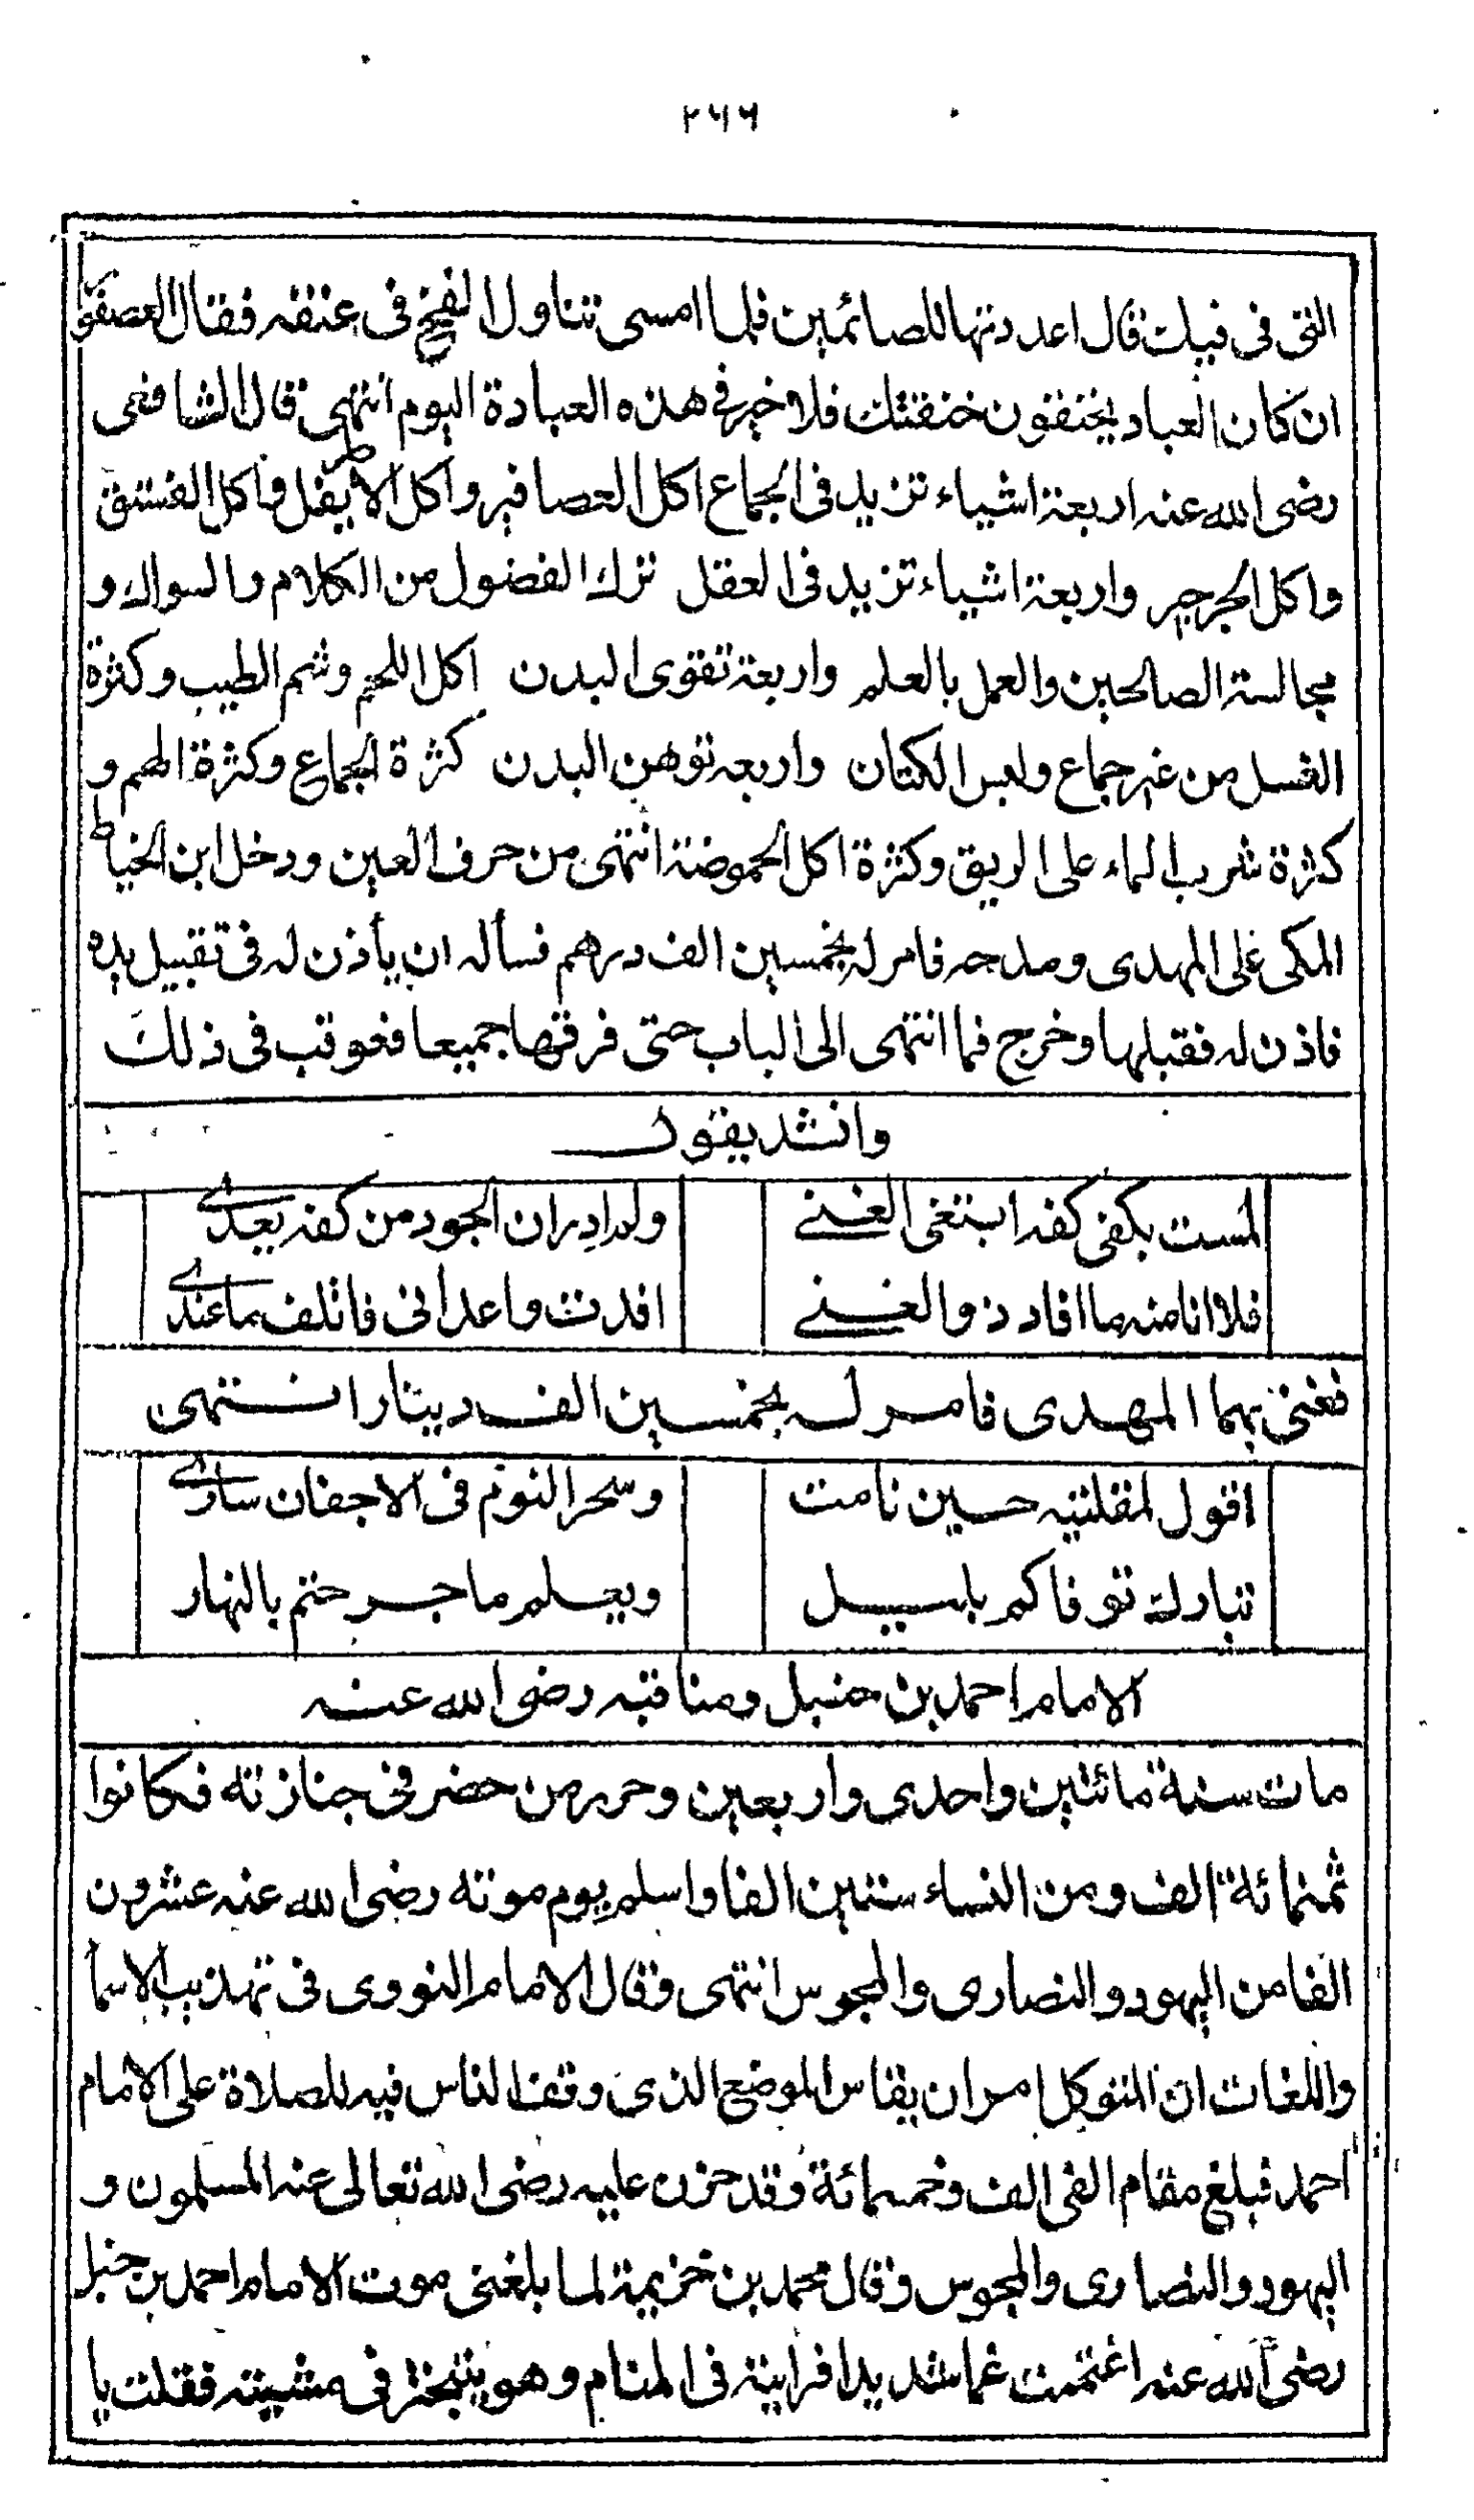 ٢٦٦
التى فى فيك قال اعددتها للصائمين فلما امسى تناول الفخ فى عنقه فقال العصفور
ان كان العباد يخنقون خنقتك فلا خير فى هذه العبادة اليوم انتهى قال الشافعى
رضى الله عنه اربعة اشياء تزيد فى الجماع اكل العصافير واكل الاطريفل واكل الفستق
واكل الجرجير واربعة اشياء تزيد فى العقل ترك الفضول من الكلام والسواك و
مجالسة الصالحين والعمل بالعلم واربعة تقوى البدن اكل اللحم وشم الطيب وكثرة
الغسل من غير جماع ولبس الكتان واربعه توهن البدن كثرة الجماع وكثرة الهم و
كثرة شرب الماء على الريق وكثرة اكل الحموضة انتهى من حرف العين ودخل ابن الخياط
المكى على المهدى ومدحه فامر له بخمسين الف درهم فسأله ان يأذن له فى تقبيل يده
فاذن له فقبلها وخرج فما انتهى الى الباب حتى فرقها جميعا فعوتب فى ذلك
وانشد يقول
لمست بكفى كفه ابتغى الغنى ولم ادر ان الجود من كفه يعدى
فلا انا منه ما افاد ذوالغنى افدت واعدانى فاتلف ماعندى
فغنى بهما المهدى فامر له بخمسين الف دينار انتهى
اقول لمقلتيه حين نامت وسحر النوم فى الاجفان سارى
تبارك توفاكم بليل ويعلم ماجرحتم بالنهار
الامام احمد بن حنبل ومناقبه رضى الله عنه
مات سنة مائتين واحدى واربعين وحرر من حضر فى جنازته فكانوا
ثمنمائة الف ومن النساء ستين الفا واسلم يوم موته رضى الله عنه عشرون
الفا من اليهود والنصارى والمجوس انتهى وقال الامام النووى فى تهذيب الاسما
واللغات ان المتوكل امر ان يقاس الموضع الذى وقف الناس فيه للصلاة على الامام
احمد فبلغ مقام الفى الف وخمسمائة وقد حزن عليه رضى الله تعالى عنه المسلمون و
اليهود والنصارى والمجوس وقال محمد بن خزيمة لما بلغنى موت الامام احمد بن حنبل
رضى الله عنه اغتممت غما شديدا فرايته فى المنام وهو يتبختر فى مشيته فقلت يا